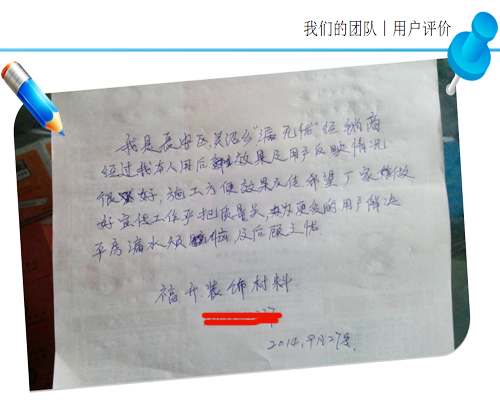 我们的团队丨用户评价
我是长安区关治乡"漏无忧"经销商
经过我本人用后 效果及用户反映情况
很 好,施工方便效果及佳希望厂家能做
好宣传工作严把质量关,为更多的用户解决
平房漏水烦 恼,及后顾之忧
福升装饰材料
2014.9月27号